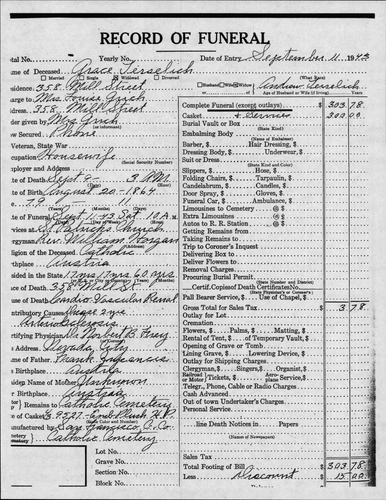 RECORD OF FUNERAL
tal No. Yearly No. Date of Entry September 11 1943
me of Deceased Grace Terselich
Married Single Widowed Divorced
(What Race)
sidence 358 Mill Street
Husband Wife Widow of Andrew Terselich
Age of Husband or Wife (if living) Years
harge to Mrs Louise Grich
ddress 358 Mill Street
der given by Mrs Grich
(or informant)
w Secured Phone
Veteran, State War
cupation Housewife
(Social Security Number)
ployer and Address
te of Death Sept 9 - 3 A.M.
te of Birth August 20 - 1864
79 (Years) (Months) (Days)
te of Funeral Sept 11-43 Sat. 10 A.M.
rvices at St Patricks Church
ergyman Rev. William Horgan
ligion of Deceased Catholic
thplace Austria
sided in the State 17 yrs 17 yrs 60 yrs
(Years) (Months)
ce of Death 358 Mill St
use of Death Cardio Vascular Renal
ntributory Causes
Arterio Sclerosis
rtifying Physician Dr
Nevada City
me of Father Frank
Birthplace Austria
iden Name of Mother Unknown
Birthplace Austria
Remains to Catholic Cemetery
of Casket
(State Color and Number)
anufactured by San Francisco C. Co.
netery Catholic Cemetery
Lot No.
Grave No.
Section No.
Block No.
Complete Funeral (except outlays) $ 303.78
Casket & Services 300.00
Burial Vault or Box
(State Kind)
Embalming Body
(Name of Embalmer)
Barber, $ Hair Dressing, $
Dressing Body, $ Underwear, $
Suit or Dress
(State Kind and Color)
Slippers, $ Hose, $
Folding Chairs, $ Tarpaulin, $
Candelabrum, $ Candles, $
Door Spray, $ Gloves, $
Funeral Car, $ Ambulance, $
Limousines to Cemetery @ $
Extra Limousines @ $
Autos to R. R. Station @ $
Getting Remains from
Taking Remains to
Trip to Coroner's Inquest
Delivering Box to
Deliver Flowers to
Removal Charges
Procuring Burial Permit
(State Number and District)
Certif. Copies of Death Certificates No.
(State Physician's or Coroner's)
Pall Bearer Service, $ Use of Chapel, $
Gross Total for Sales Tax $ 3.78
Outlay for Lot
Cremation
Flowers, $ Palms, $ Matting, $
Rental of Tent, $ of Temporary Vault, $
Opening of Grave or Tomb
Lining Grave, $ Lowering Device, $
Outlay for Shipping Charges
Clergyman, $ Singers, $ Organist, $
Railroad or Motor Tickets, $ Aeroplane Service, $
Telegr., Phone, Cable or Radio Charges
Cash Advanced
Out of town Undertaker's Charges
Personal Service
line Death Notices in Papers
(Name of Newspapers)
Sales Tax
Total Footing of Bill $ 303.78
Less Discount $ 15.00